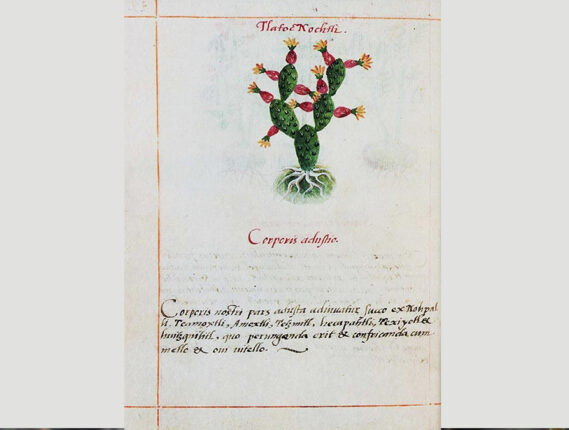 Tlatoc Nochtli.
Corporis adustio.
Corporis nostri pars adusta adiuvatur succo ex Nohpal
li, Teamoxtli, Amoxtli, Tetzmitl, hecapahtli, Texiyotl &
huitzquilitl, quo perungenda erit & confricanda cum
melle & oui uitello.